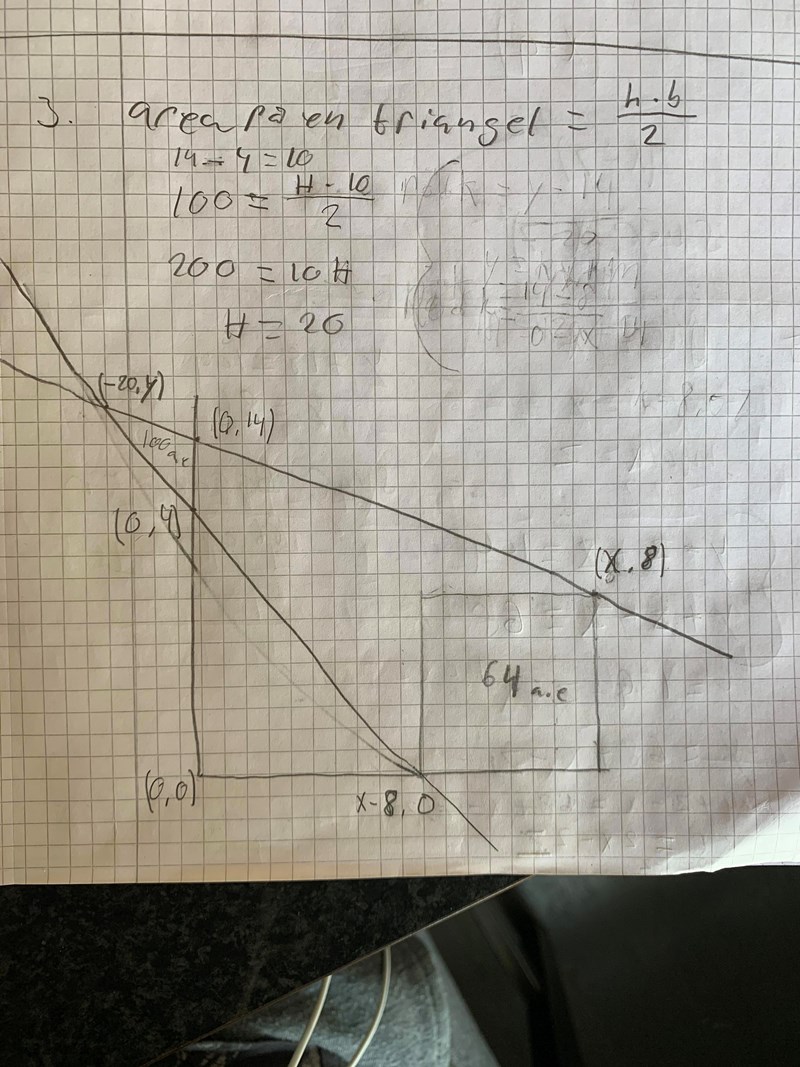 3. area på en triangel = h·b/2
14-4=10
100 = H·10/2
200 = 10H
H = 20
(-20,y)
(0,14)
100 a.e
(0,4)
(x,8)
64 a.e
(0,0)
x-8,0